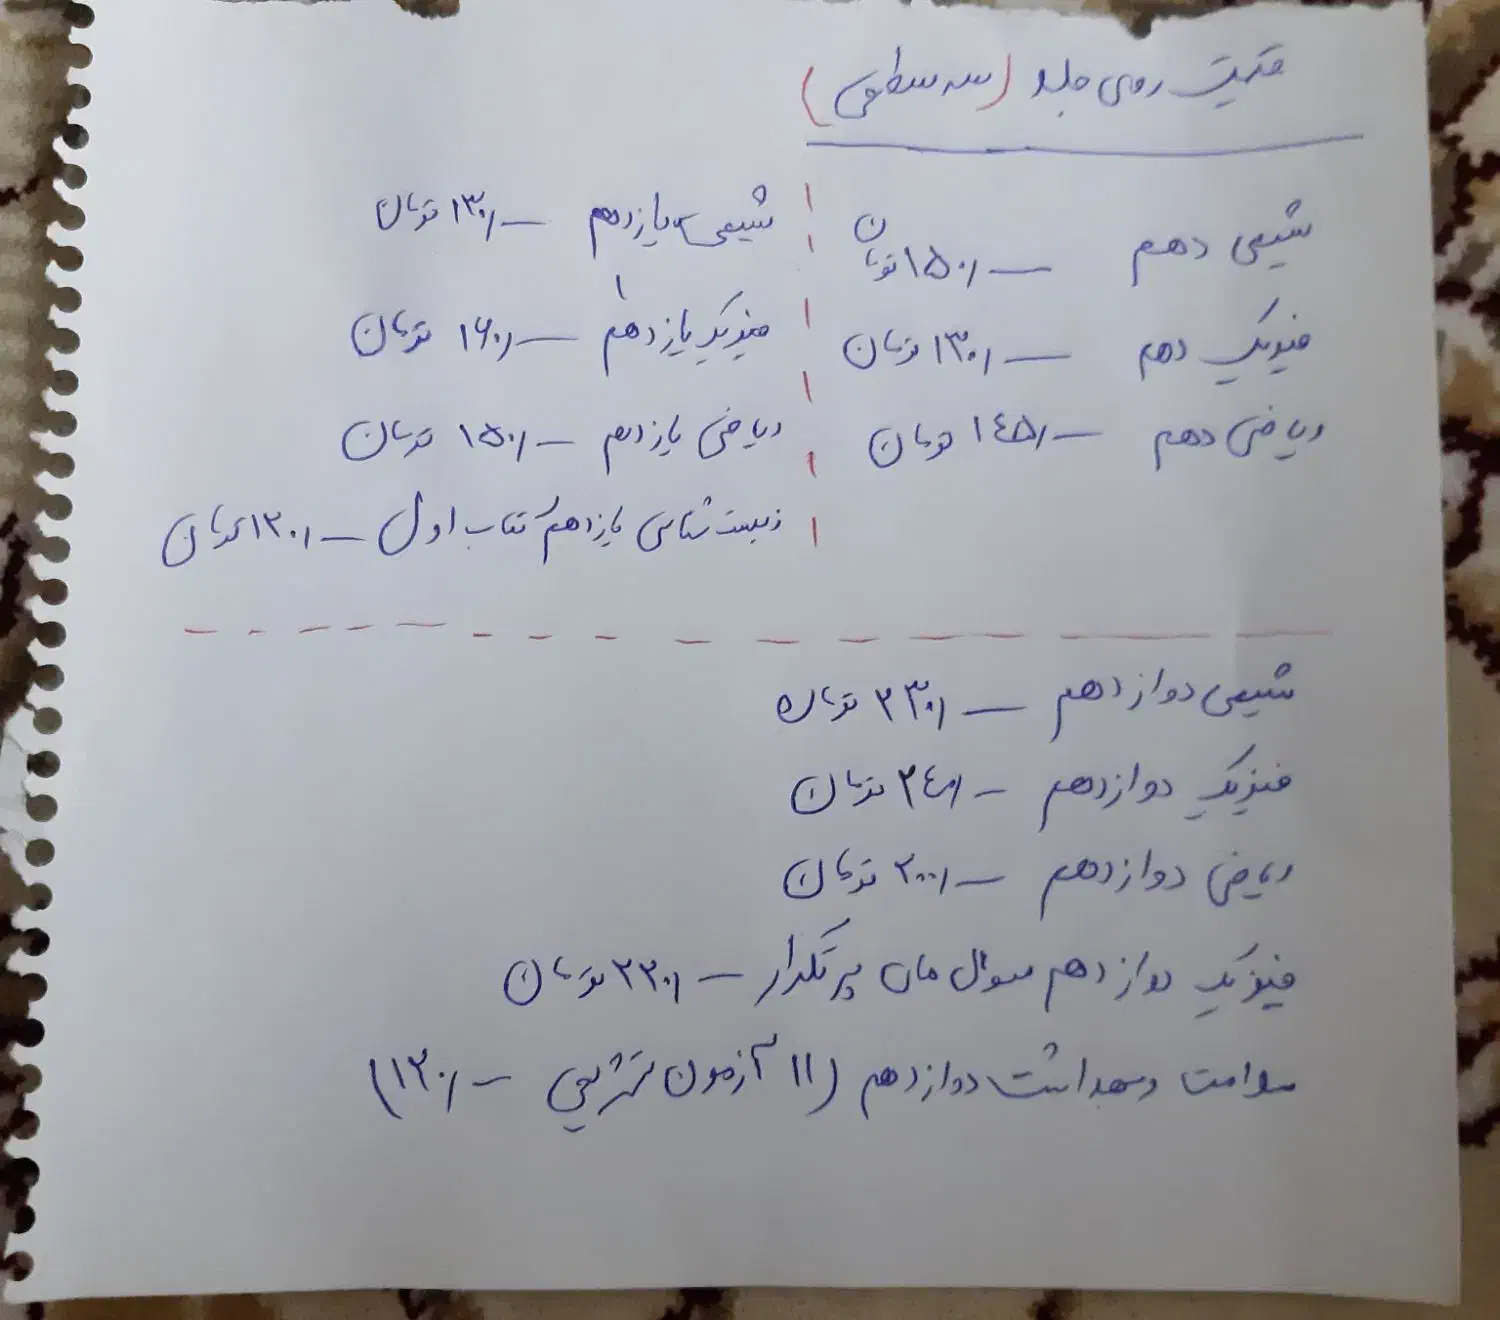 قیمت روی جلد (سه سطحی)
شیمی دهم — ۱۵۰٫ تومان
فیزیک دهم — ۱۳۰٫ تومان
ریاضی دهم — ۱۴۵٫ تومان
شیمی یازدهم — ۱۳۰٫ تومان
فیزیک یازدهم — ۱۶۰٫ تومان
ریاضی یازدهم — ۱۵۰٫ تومان
زیست شناسی یازدهم کتاب اول — ۱۲۰٫ تومان
شیمی دوازدهم — ۲۳۰٫ تومان
فیزیک دوازدهم — ۲۴۰٫ تومان
ریاضی دوازدهم — ۲۰۰٫ تومان
فیزیک دوازدهم سوال های پرتکرار — ۲۲۰٫ تومان
سلامت و بهداشت دوازدهم (۱۱ آزمون تشریحی — ۱۲۰٫)